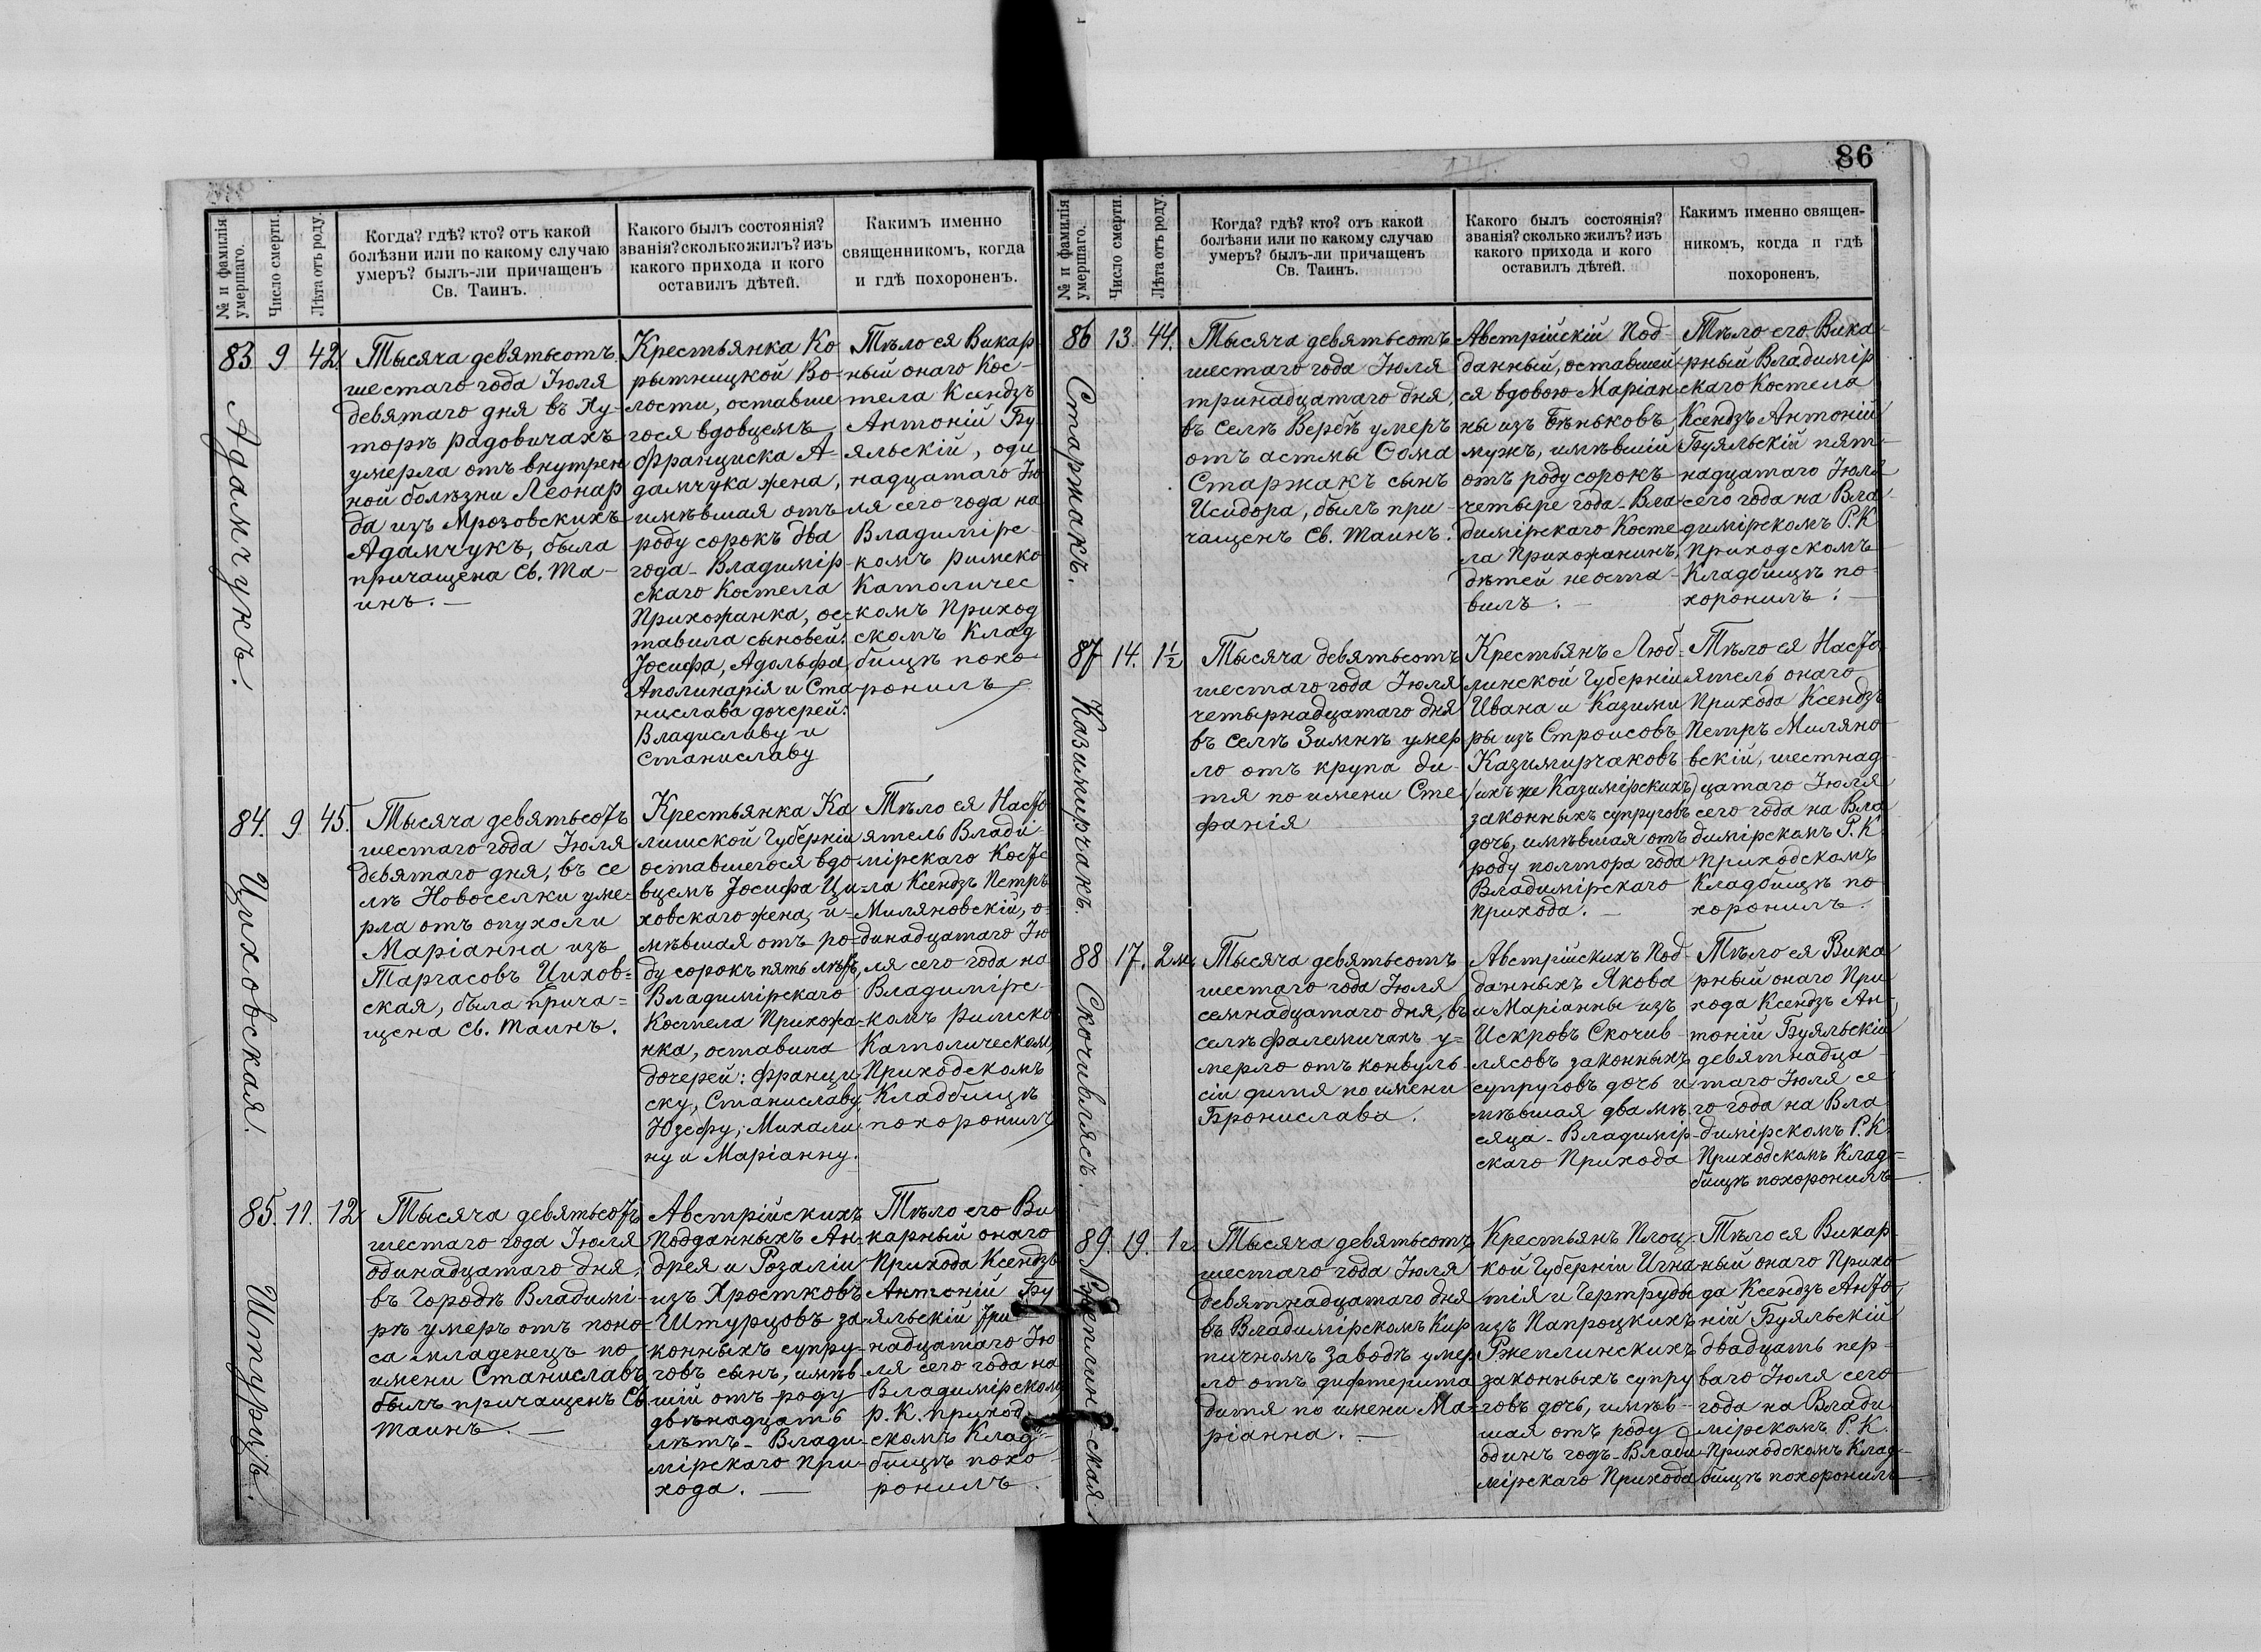 86
№ и фамилія
умершаго.
Число смерти.
Лѣта отъ роду.
Когда? гдѣ? кто? отъ какой
болѣзни или по какому случаю
умеръ? былъ-ли причащенъ
Св. Таинъ.
Какого былъ состоянія?
званія? сколько жилъ? изъ
какого прихода и кого
оставилъ дѣтей.
Какимъ именно
священникомъ, когда
и гдѣ похороненъ.
83
Адамчукъ.
9
42.
Тысяча девятьсотъ
шестаго года Іюля
девятаго дня въ Ху-
торѣ Радовичахъ
умерла отъ внутрен
ной болѣзни Леонар
да изъ Мрозовскихъ
Адамчукъ, была
причащена Св. Та-
инъ. —
Крестьянка Ко
рытницкой Во-
лости, оставше
гося вдовцемъ
Франциска А-
дамчука жена,
имѣвшая отъ
роду сорокъ два
года - Владимір
скаго Костела
Прихожанка, ос
тавила сыновей:
Іосифа, Адольфа
Аполинарія и Ста
нислава дочерей:
Владиславу и
Станиславу
Тѣло ея Викар
ный онаго Кос-
тела Ксендзъ
Антоній Бу-
яльскій, оди
надцатаго Ію
ля сего года на
Владимірс-
комъ Римско
Католичес
комъ Приход
скомъ Клад
бищѣ похо-
ронилъ
84.
Циховская.
9
45.
Тысяча девятьсотъ
шестаго года Іюля
девятаго дня, въ се
лѣ Новоселки уме-
рла отъ опухоли
Маріанна изъ
Таргасовъ Цихов=
ская, была прича=
щена Св. Таинъ.
Крестьянка Ка
лишской Губерніи
оставшегося вдо
вцемъ Іосифа Ци-
ховскаго жена, и-
мѣвшая отъ ро-
ду сорокъ пять лѣтъ,
Владимірскаго
Костела Прихожа-
нка, оставила
дочерей: Франци-
ску, Станиславу,
Юзефу, Михали
ну и Маріанну.
Тѣло ея Насто
ятель Влади-
мірскаго Косте
ла Ксендзъ Петръ
Миляновскій, о-
динадцатаго Ію
ля сего года на
Владимірс-
комъ Римско
Католическом
Приходскомъ
Кладбищѣ
похоронилъ
85.
Штурцъ.
11.
12
Тысяча девятьсотъ
шестаго года Іюля
одинадцатаго дня,
въ Городѣ Владимі-
рѣ умеръ отъ поно
са младенецъ по
имени Станиславъ
былъ причащенъ Св.
Таинъ. —
Австрійскихъ
Подданныхъ Ан-
дрея и Розаліи
изъ Хростковъ
Штурцовъ за
конныхъ супру-
говъ сынъ, имѣв
шій отъ роду
двѣнадцать
лѣтъ - Влади-
мірскаго При-
хода. —
Тѣло его Ви
карный онаго
Прихода Ксендзъ
Антоній Бу
яльскій три
надцатаго Ію
ля сего года на
Владимірском
Р. К. приход
скомъ Клад-
бищѣ похо-
ронилъ.
№ и фамилія
умершаго.
Число смерти.
Лѣта отъ роду.
Когда? гдѣ? кто? отъ какой
болѣзни или по какому случаю
умеръ? былъ-ли причащенъ
Св. Таинъ.
Какого былъ состоянія?
званія? сколько жилъ? изъ
какого прихода и кого
оставилъ дѣтей.
Какимъ именно священ-
никомъ, когда и гдѣ
похороненъ.
86
Старжакъ.
13.
44.
Тысяча девятьсотъ
шестаго года Іюля
тринадцатаго дня,
въ селѣ Вербѣ умеръ
отъ астмы Ѳома
Старжакъ сынъ
Исидора, былъ при-
чащенъ Св. Таинъ.
Австрійскій Под-
данный, оставшей
ся вдовою Маріан
ны изъ Бѣньковъ
мужъ, имѣвшій
отъ роду сорокъ
четыре года - Вла
димірскаго Косте
ла Прихожанинъ,
дѣтей не оста-
вилъ. —
Тѣло его Вика-
рный Владимір
скаго Костела
Ксендзъ Антоній
Буяльскій пят-
надцатаго Іюля
сего года на Вла
димірскомъ Р. К
Приходскомъ
Кладбищѣ по-
хоронилъ. —
87
Казимирчакъ.
14.
1½
Тысяча девятьсотъ
шестаго года Іюля
четырнадцатаго дня
въ селѣ Зимнѣ умер
ло отъ крупа ди-
тя по имени Сте
фанія
Крестьянъ Люб-
линской Губерніи
Ивана и Казими
ры изъ Строисовъ
Казимирчаковъ
(ихъ же Казимірскихъ)
законныхъ супруговъ
дочь, имѣвшая отъ
роду полтора года
Владимірскаго
прихода. —
Тѣло ея Насто
ятель онаго
Прихода Ксендзъ
Петръ Миляно
вскій, шестнад
цатаго Іюля
сего года на Вла
димірскомъ Р. К
приходскомъ
Кладбищѣ по
хоронилъ.
88
Скочивлясъ.
17.
2 м.
Тысяча девятьсотъ
шестаго года Іюля
семнадцатаго дня, въ
селѣ Фалемичахъ у=
мерло отъ конвуль
сіи дитя по имени
Бронислава.
Австрійскихъ Под-
данныхъ Якова
и Маріанны изъ
Искровъ Скочив-
лясовъ законныхъ
супруговъ дочь и
мѣвшая два мѣ-
сяца - Владимір-
скаго Прихода
Тѣло ея Вика
рный онаго При
хода Ксендзъ Ан-
тоній Буяльскій
девятнадца-
таго Іюля се
го года на Вла
димірскомъ Р. К.
Приходскомъ Клад=
бищѣ похоронилъ
89.
Ржеплин-ская
19.
1 г.
Тысяча девятьсотъ
шестаго года Іюля
девятнадцатаго дня
въ Владимірскомъ Кир
пичномъ Заводѣ умер
ло отъ дифтерита
дитя по имени Ма-
ріанна. —
Крестьянъ Плоц-
кой Губерніи Игна
тія и Гертруды
изъ Папроцкихъ
Ржеплинскихъ
законныхъ супру
говъ дочь, имѣв-
шая отъ роду
одинъ годъ - Влади
мірскаго Прихода
Тѣло ея Викар-
ный онаго Прихо-
да Ксендзъ Анто
ній Буяльскій
двадцать пер-
ваго Іюля сего
года на Влади
мірскомъ Р. К.
Приходскомъ Клад-
бищѣ похоронилъ